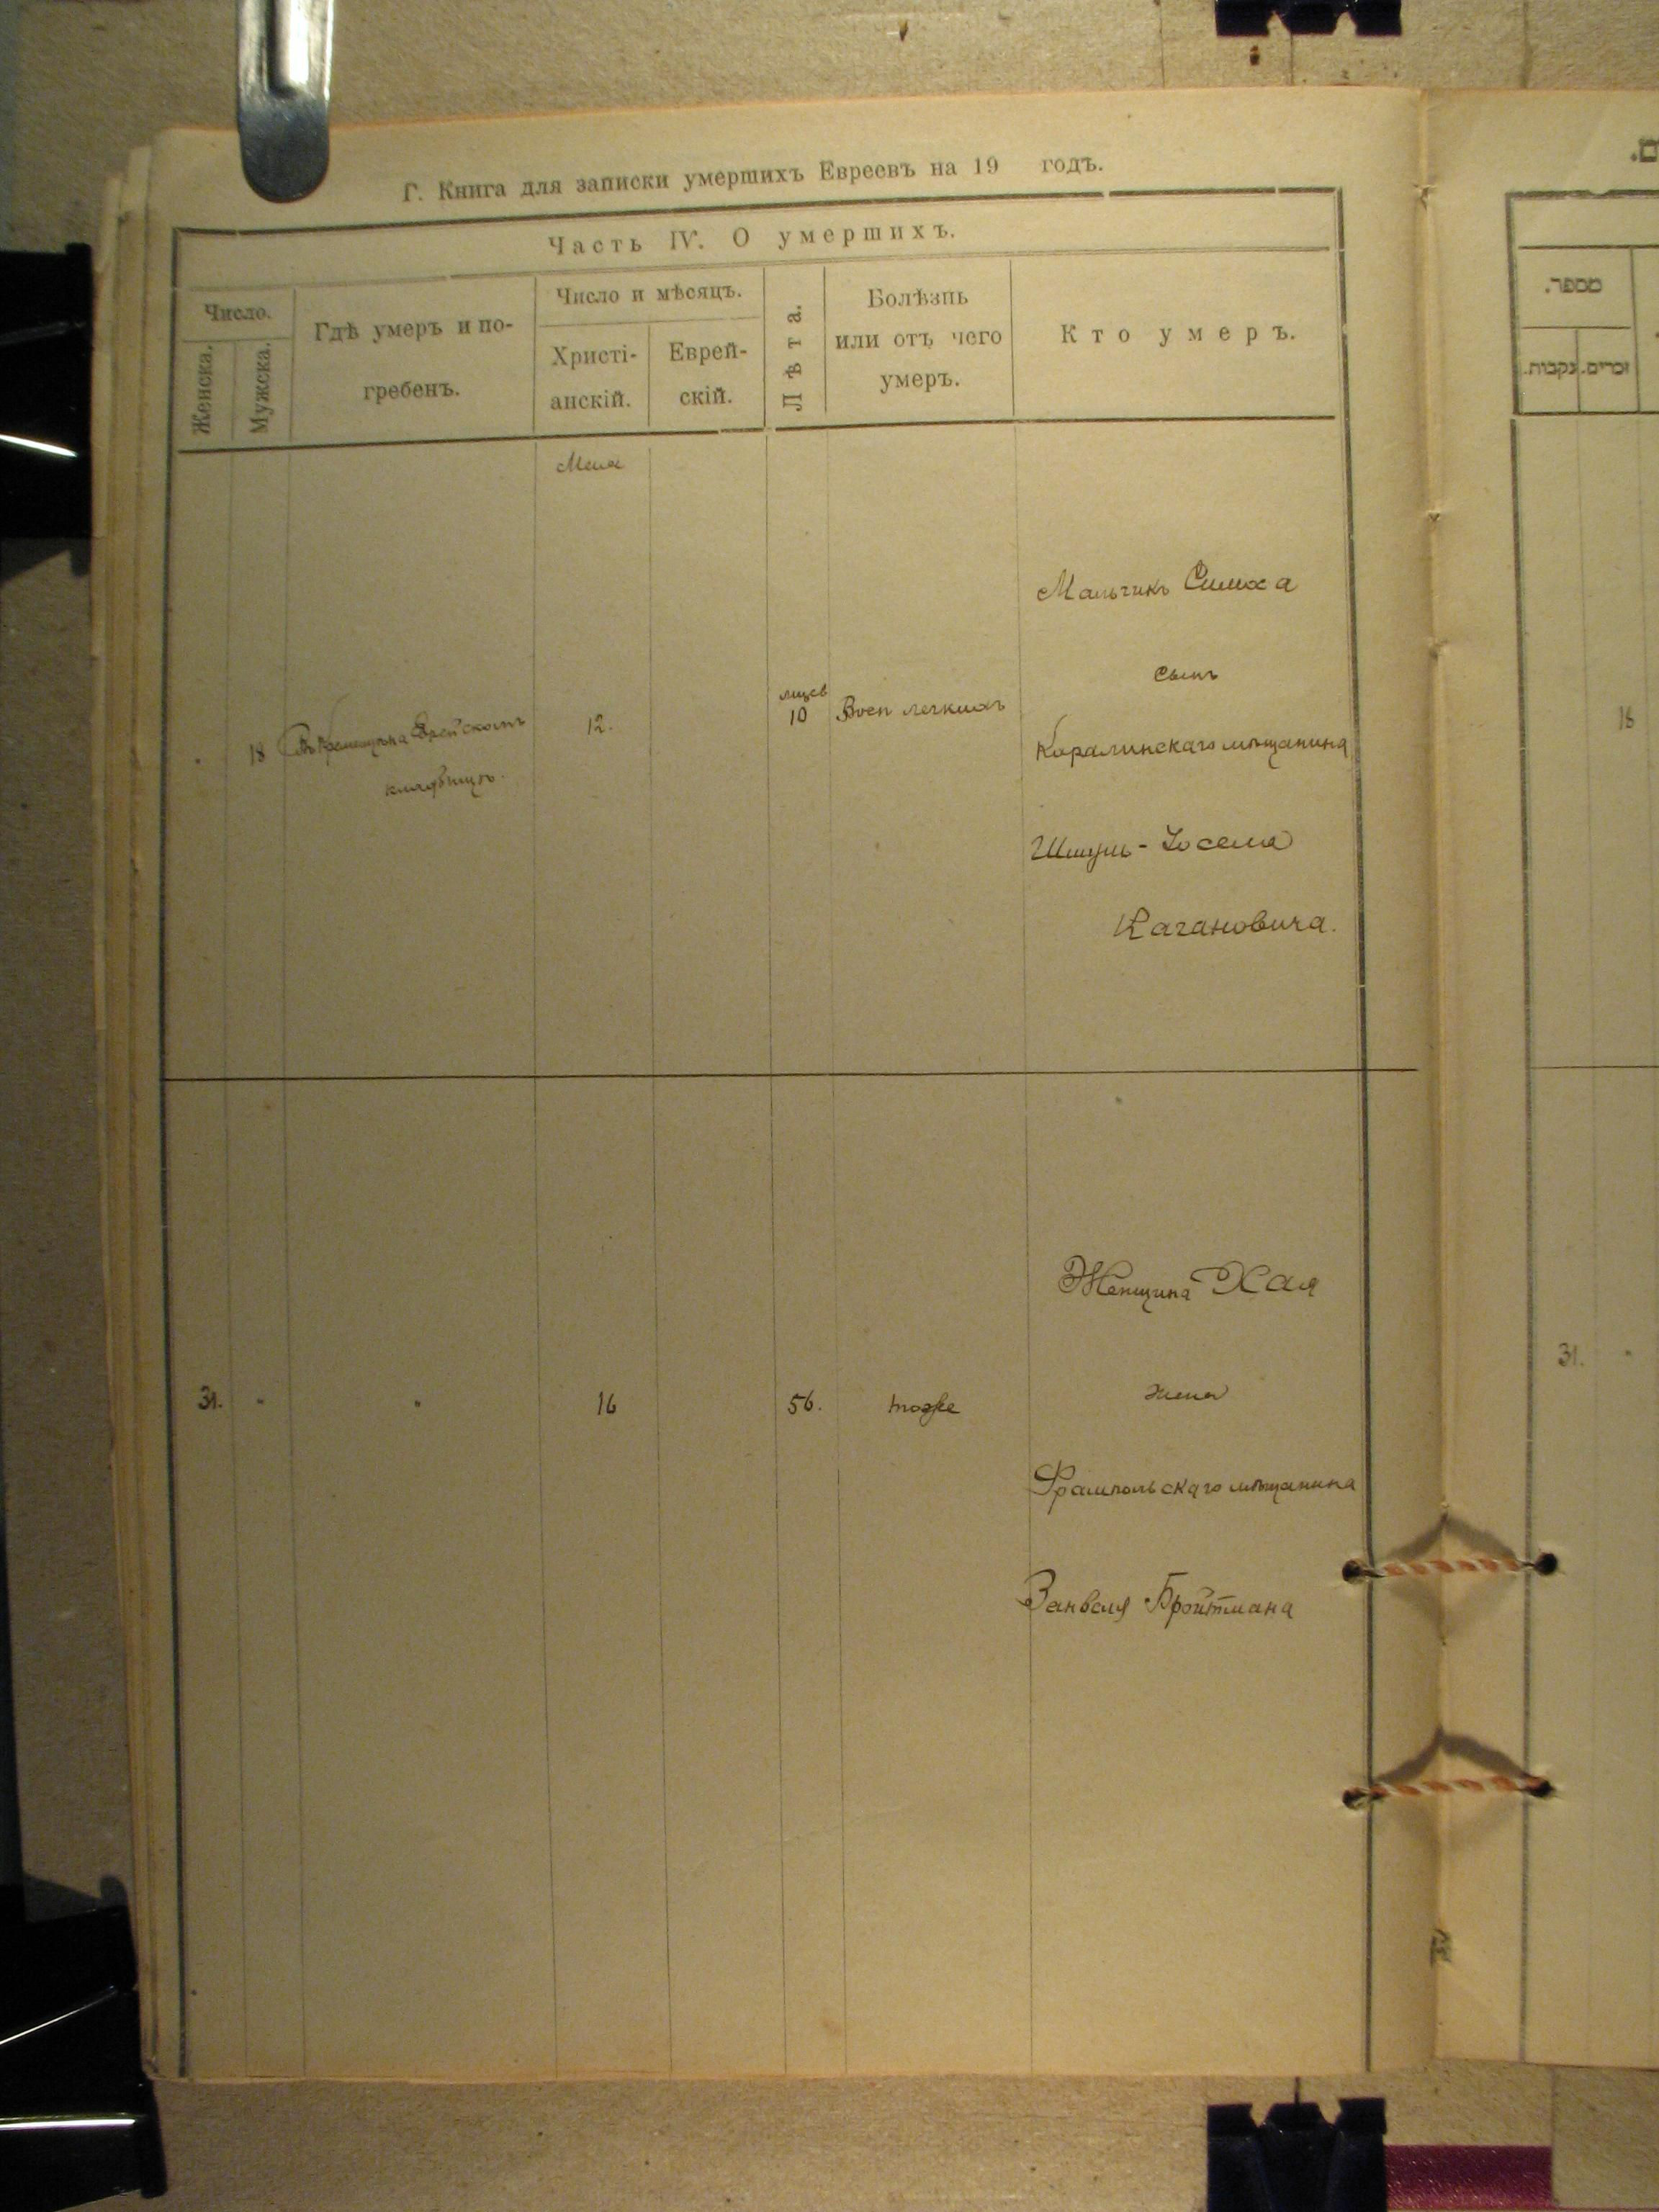 Г. Книга для записки умершихъ Евреевъ на 19 годъ.
Часть IV. О умершихъ.
Число.
Женска.
Мужска.
Гдѣ умеръ и по-
гребенъ.
Число и мѣсяцъ.
Христі-
анскій.
Еврей-
скій.
Лѣта.
Болѣзнь
или отъ чего
умеръ.
Кто умеръ.
Мая
18
Еврейскомъ
кладбищѣ.
12.
10
Восп легкихъ
Мальчикъ Симха
сынъ
мѣщанина
Шмуль-Іосела
Кагановича.
31.
"
"
16
56.
тоже
Женщина Хая
жена
Фрампольскаго мѣщанина
Занвеля Бройтмана
מספר.
נקבות.
זכרים.
18
31.
"